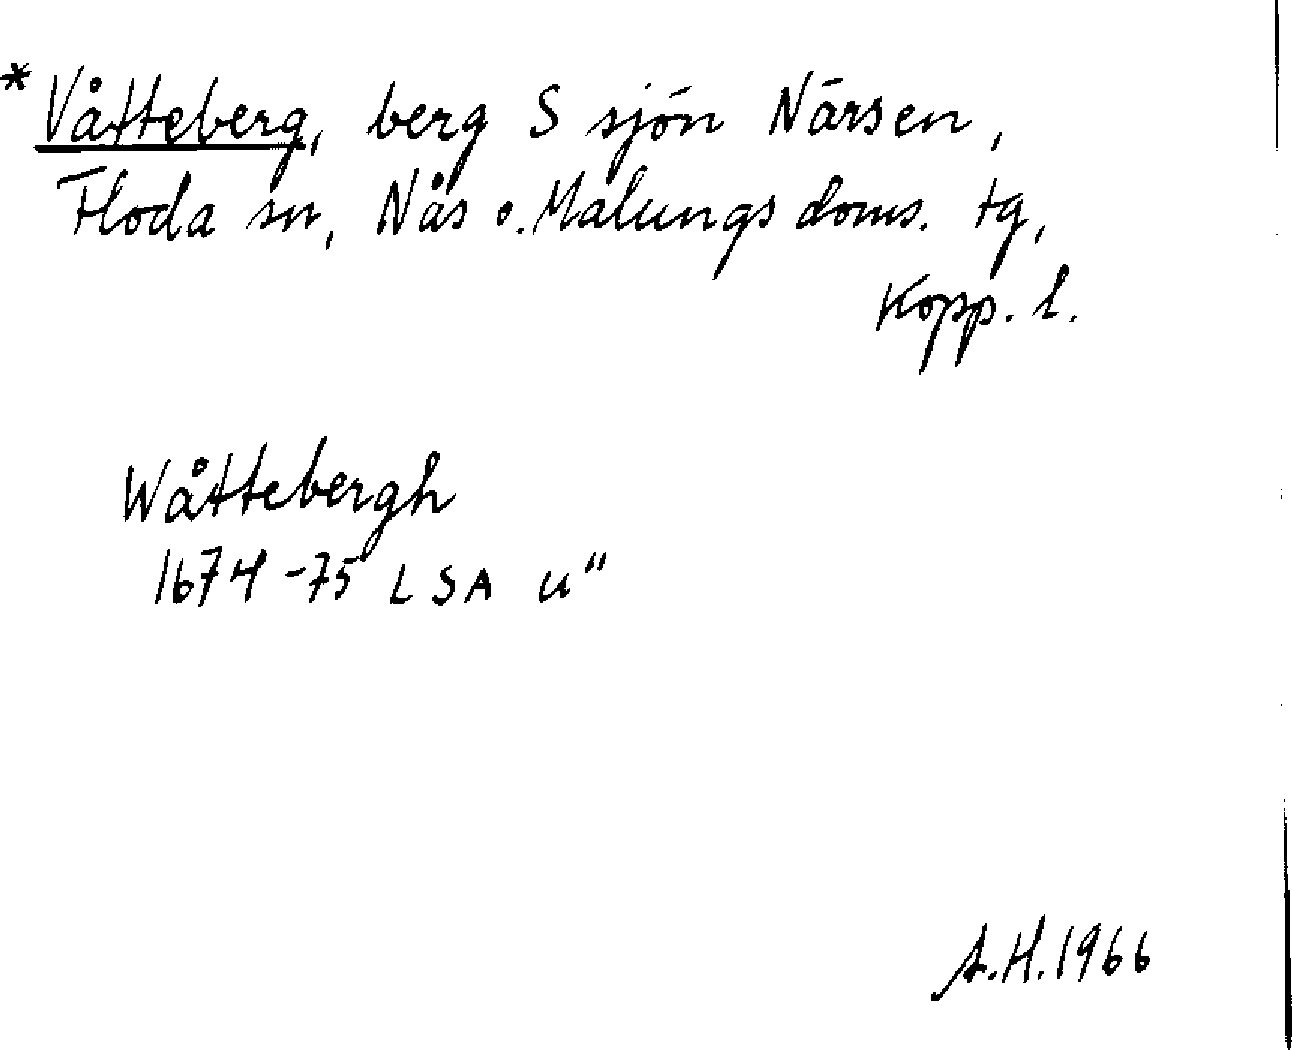 * Våtteberg, berg S sjön Närsen,
Floda sn, Nås o. Malungs doms. tg,
Kopp. l.
Wåttebergh
1674-75 LSA u"
A.H. 1966